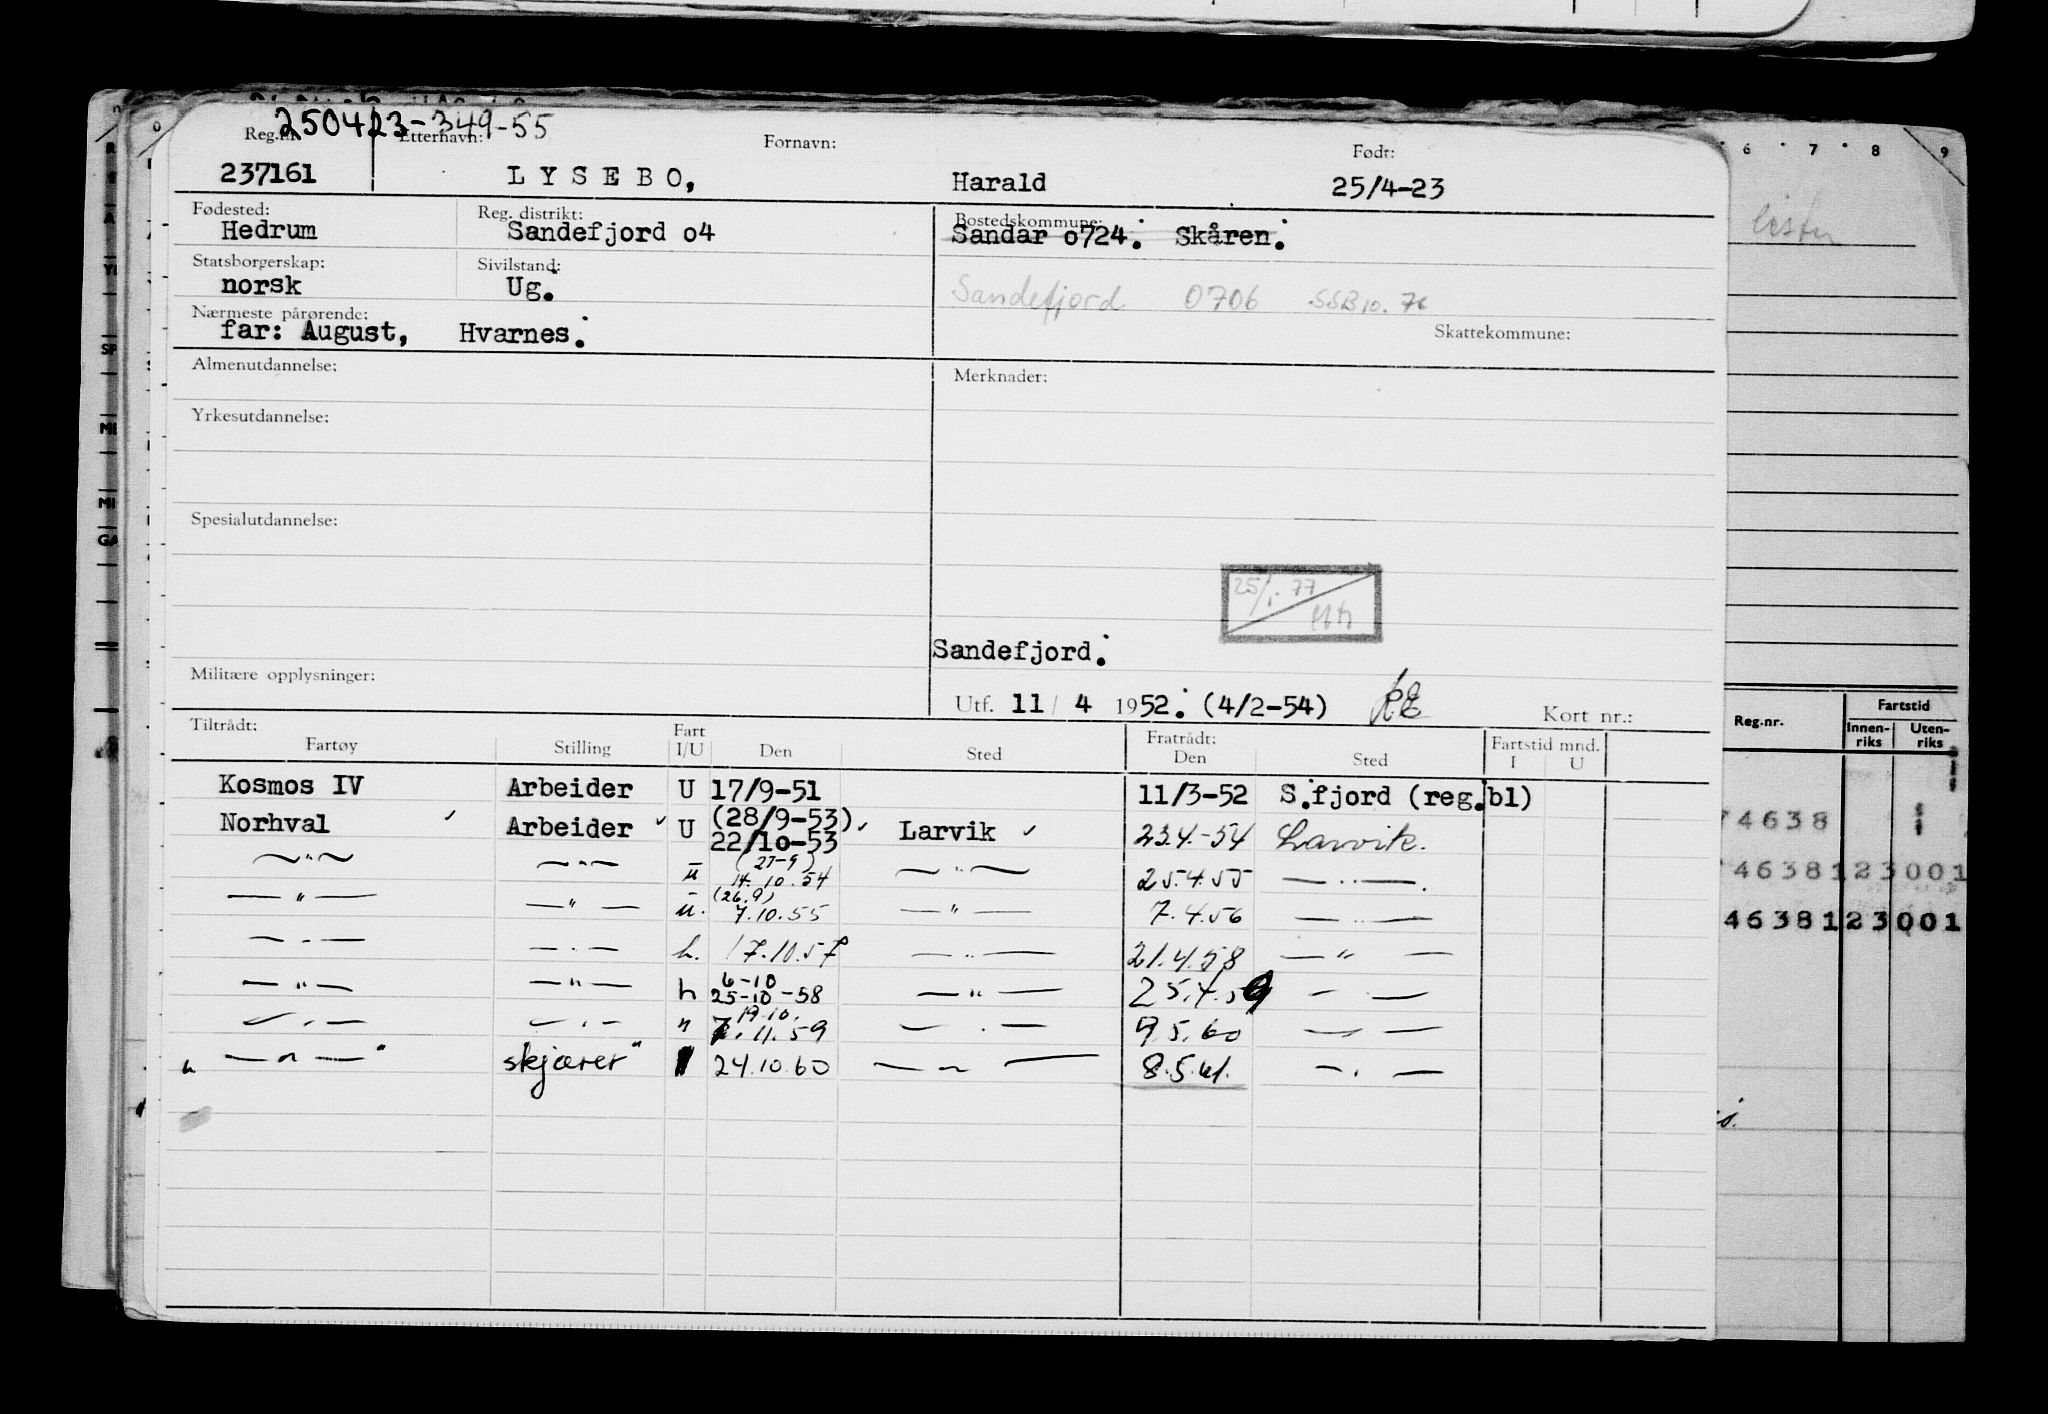 250423-349-55
Reg.nr. Etternavn: Fornavn: Født:
237161 LYSEBO, Harald 25/4-23
Fødested: Reg. distrikt: Bostedskommune:
Hedrum Sandefjord o4 Sandar o724. Skåren.
Statsborgerskap: Sivilstand:
norsk Ug. Sandefjord 0706 SSB 10. 76
Nærmeste pårørende: Skattekommune:
far: August, Hvarnes.
Almenutdannelse: Merknader:
Yrkesutdannelse:
Spesialutdannelse:
25/1. 77
Sandefjord.
Militære opplysninger:
Utf. 11/4 1952. (4/2-54) Kort nr.:
Tiltrådt: Fratrådt: Fartstid mnd.
Fartøy Stilling Fart I/U Den Sted Den Sted I U
Kosmos IV Arbeider U 17/9-51 11/3-52 S.fjord (reg.bl)
Norhval Arbeider U (28/9-53) 22/10-53 Larvik 23.4.-54 Larvik.
—"— —"— u (27-9) 14.10.54 —"— 25.4.55 —"—.
—"— —"— u. (26.9) 7.10.55 —"— 7.4.56 —"—
—"— —"— h. 17.10.57 —"— 21.4.58 —"—
—"— —"— h 6-10 25-10-58 —"— 25.4.59 —"—
—"— —"— n 19.10. 7.11.59 —"— 9.5.60 —"—
—"— skjærer 24.10.60 —"— 8.5.61. —"—
6 7 8 9
Reg.nr. Fartstid
Innen-riks Uten-riks
74638
74638123001
4638123001